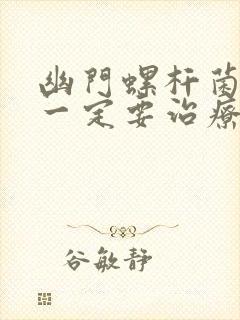 幽門螺杆菌
一定要治療
谷敏靜